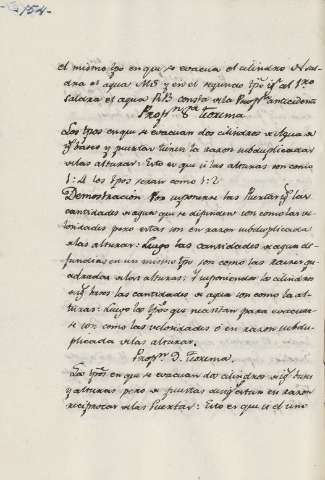 154
el mismo tpo en que se evacua el cilindro A sal
dra el agua MS y en el segundo tpo igl al 1ro
saldra el agua RB consta de la Propn antecedente
Propn 8ª Teorema
Los tpos en que se evacuan dos cilindros de Agua de
igl baseo y puertas tienen la razon subduplicada
de las alturas: Esto es que si las alturas son como
1:4 los tpos seran como 1:2
Demostracion Por suponerse las Puertas igs las
cantidades de agua que se difunden son como las ve
locidades pero estas son en razon subduplicada
de las alturas: Luego las cantidades de agua di-
fundidas en un mismo tpo son como las raices qu
adradas de los alturas: Y suponiendo los cilindros
de igs bases las cantidades de agua son como las al-
turas: Luego los tpos que necesitan para evacuar
se son como las velocidades o en razon subdu-
plicada de las alturas.
Propn 9. Teorema.
Los tpos en que se evacuan dos cilindros de igs bases
y alturas pero de puertas desigs estan en razon
reciproca de las Puertas: Esto es que si el uno